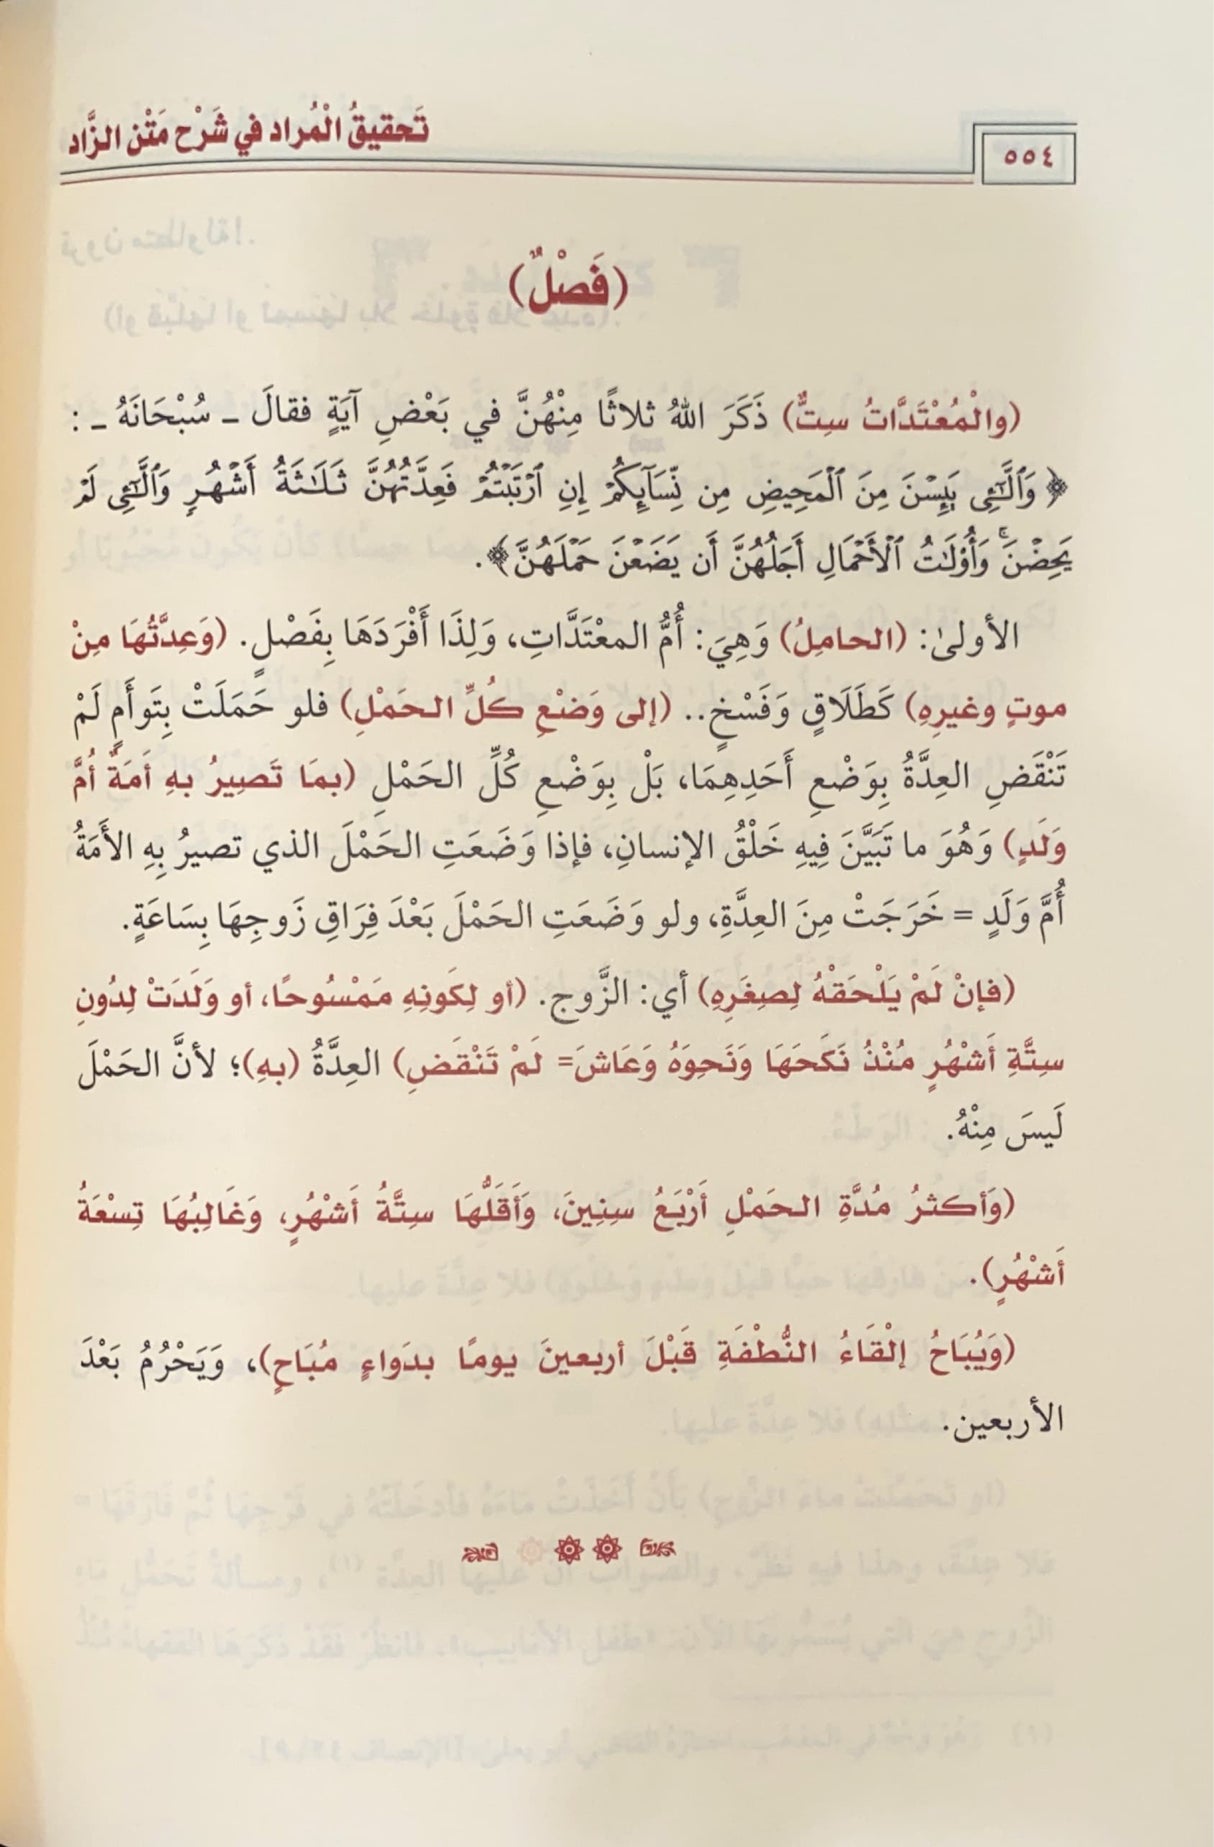 تَحقيقُ الْمُراد في شَرْح مَتْن الزَّاد
٥٥٤
(فَصْلٌ)
(والْمُعْتَدَّاتُ سِتٌّ) ذَكَرَ اللهُ ثلاثًا مِنْهُنَّ في بَعْضِ آيَةٍ فقالَ ـ سُبْحَانَهُ ـ :
﴿ وَٱلَّٰٓـِٔى يَئِسْنَ مِنَ ٱلْمَحِيضِ مِن نِّسَآئِكُمْ إِنِ ٱرْتَبْتُمْ فَعِدَّتُهُنَّ ثَلَٰثَةُ أَشْهُرٍ وَٱلَّٰٓـِٔى لَمْ
يَحِضْنَ ۚ وَأُوْلَٰتُ ٱلْأَحْمَالِ أَجَلُهُنَّ أَن يَضَعْنَ حَمْلَهُنَّ﴾.
الأولىٰ: (الحامِلُ) وَهِيَ: أُمُّ المعْتَدَّاتِ، وَلِذَا أَفْرَدَهَا بِفَصْلٍ. (وَعِدَّتُهَا مِنْ
موتٍ وغيرِهِ) كَطَلَاقٍ وَفَسْخٍ.. (إلى وَضْعِ كُلِّ الحَمْلِ) فلو حَمَلَتْ بِتَوأَمٍ لَمْ
تَنْقَضِ العِدَّةُ بِوَضْعِ أَحَدِهِمَا، بَلْ بِوَضْعِ كُلِّ الحَمْلِ (بمَا تَصِيرُ بهِ أمَةٌ أُمَّ
وَلَدٍ) وَهُوَ ما تَبَيَّنَ فِيهِ خَلْقُ الإنسانِ، فإذا وَضَعَتِ الحَمْلَ الذي تصيرُ بِهِ الأَمَةُ
أُمَّ وَلَدٍ = خَرَجَتْ مِنَ العِدَّةِ، ولو وَضَعَتِ الحَمْلَ بَعْدَ فِرَاقِ زَوجِهَا بِسَاعَةٍ.
(فإنْ لَمْ يَلْحَقْهُ لِصِغَرِهِ) أي: الزَّوج. (أو لِكَونِهِ مَمْسُوحًا، أو وَلَدَتْ لِدُونِ
سِتَّةِ أَشْهُرٍ مُنْذُ نَكَحَهَا وَنَحوَهُ وَعَاشَ= لَمْ تَنْقَضِ) العِدَّةُ (بهِ)؛ لأنَّ الحَمْلَ
لَيسَ مِنْهُ.
(وَأكثرُ مُدَّةِ الحَمْلِ أَرْبَعُ سِنِينَ، وَأَقَلُّهَا سِتَّةُ أَشْهُرٍ، وَغَالِبُهَا تِسْعَةُ
أَشْهُرٍ).
(وَيُبَاحُ إلْقَاءُ النُّطْفَةِ قَبْلَ أربعينَ يومًا بدَواءٍ مُبَاحٍ)، وَيَحْرُمُ بَعْدَ
الأربعين.